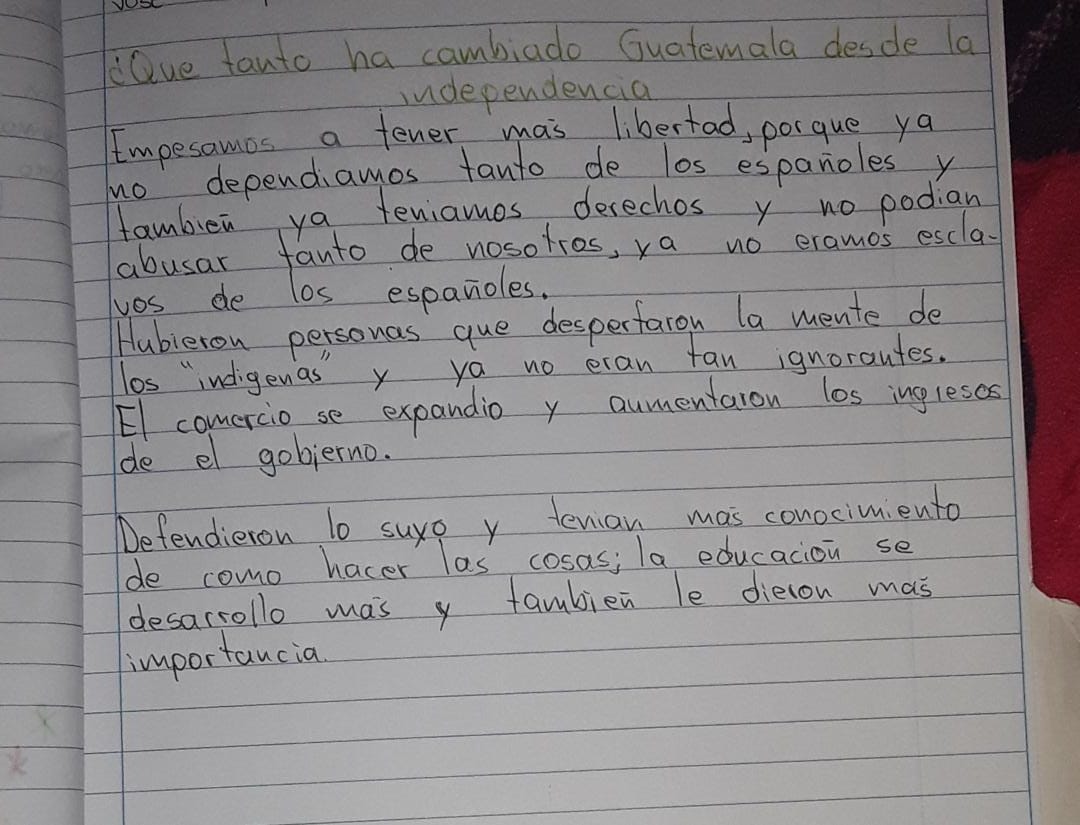 ¿Que tanto ha cambiado Guatemala desde la
independencia
Empesamos a tener más libertad, porque ya
no dependiamos tanto de los españoles y
también ya teniamos derechos y no podian
abusar tanto de nosotros, ya no eramos escla-
vos de los españoles.
Hubieron personas que despertaron la mente de
los "indigenas" y ya no eran tan ignorantes.
El comercio se expandio y aumentaron los ingresos
de el gobierno.
Defendieron lo suyo y tenian más conocimiento
de como hacer las cosas; la educación se
desarrollo más y también le dieron más
importancia.